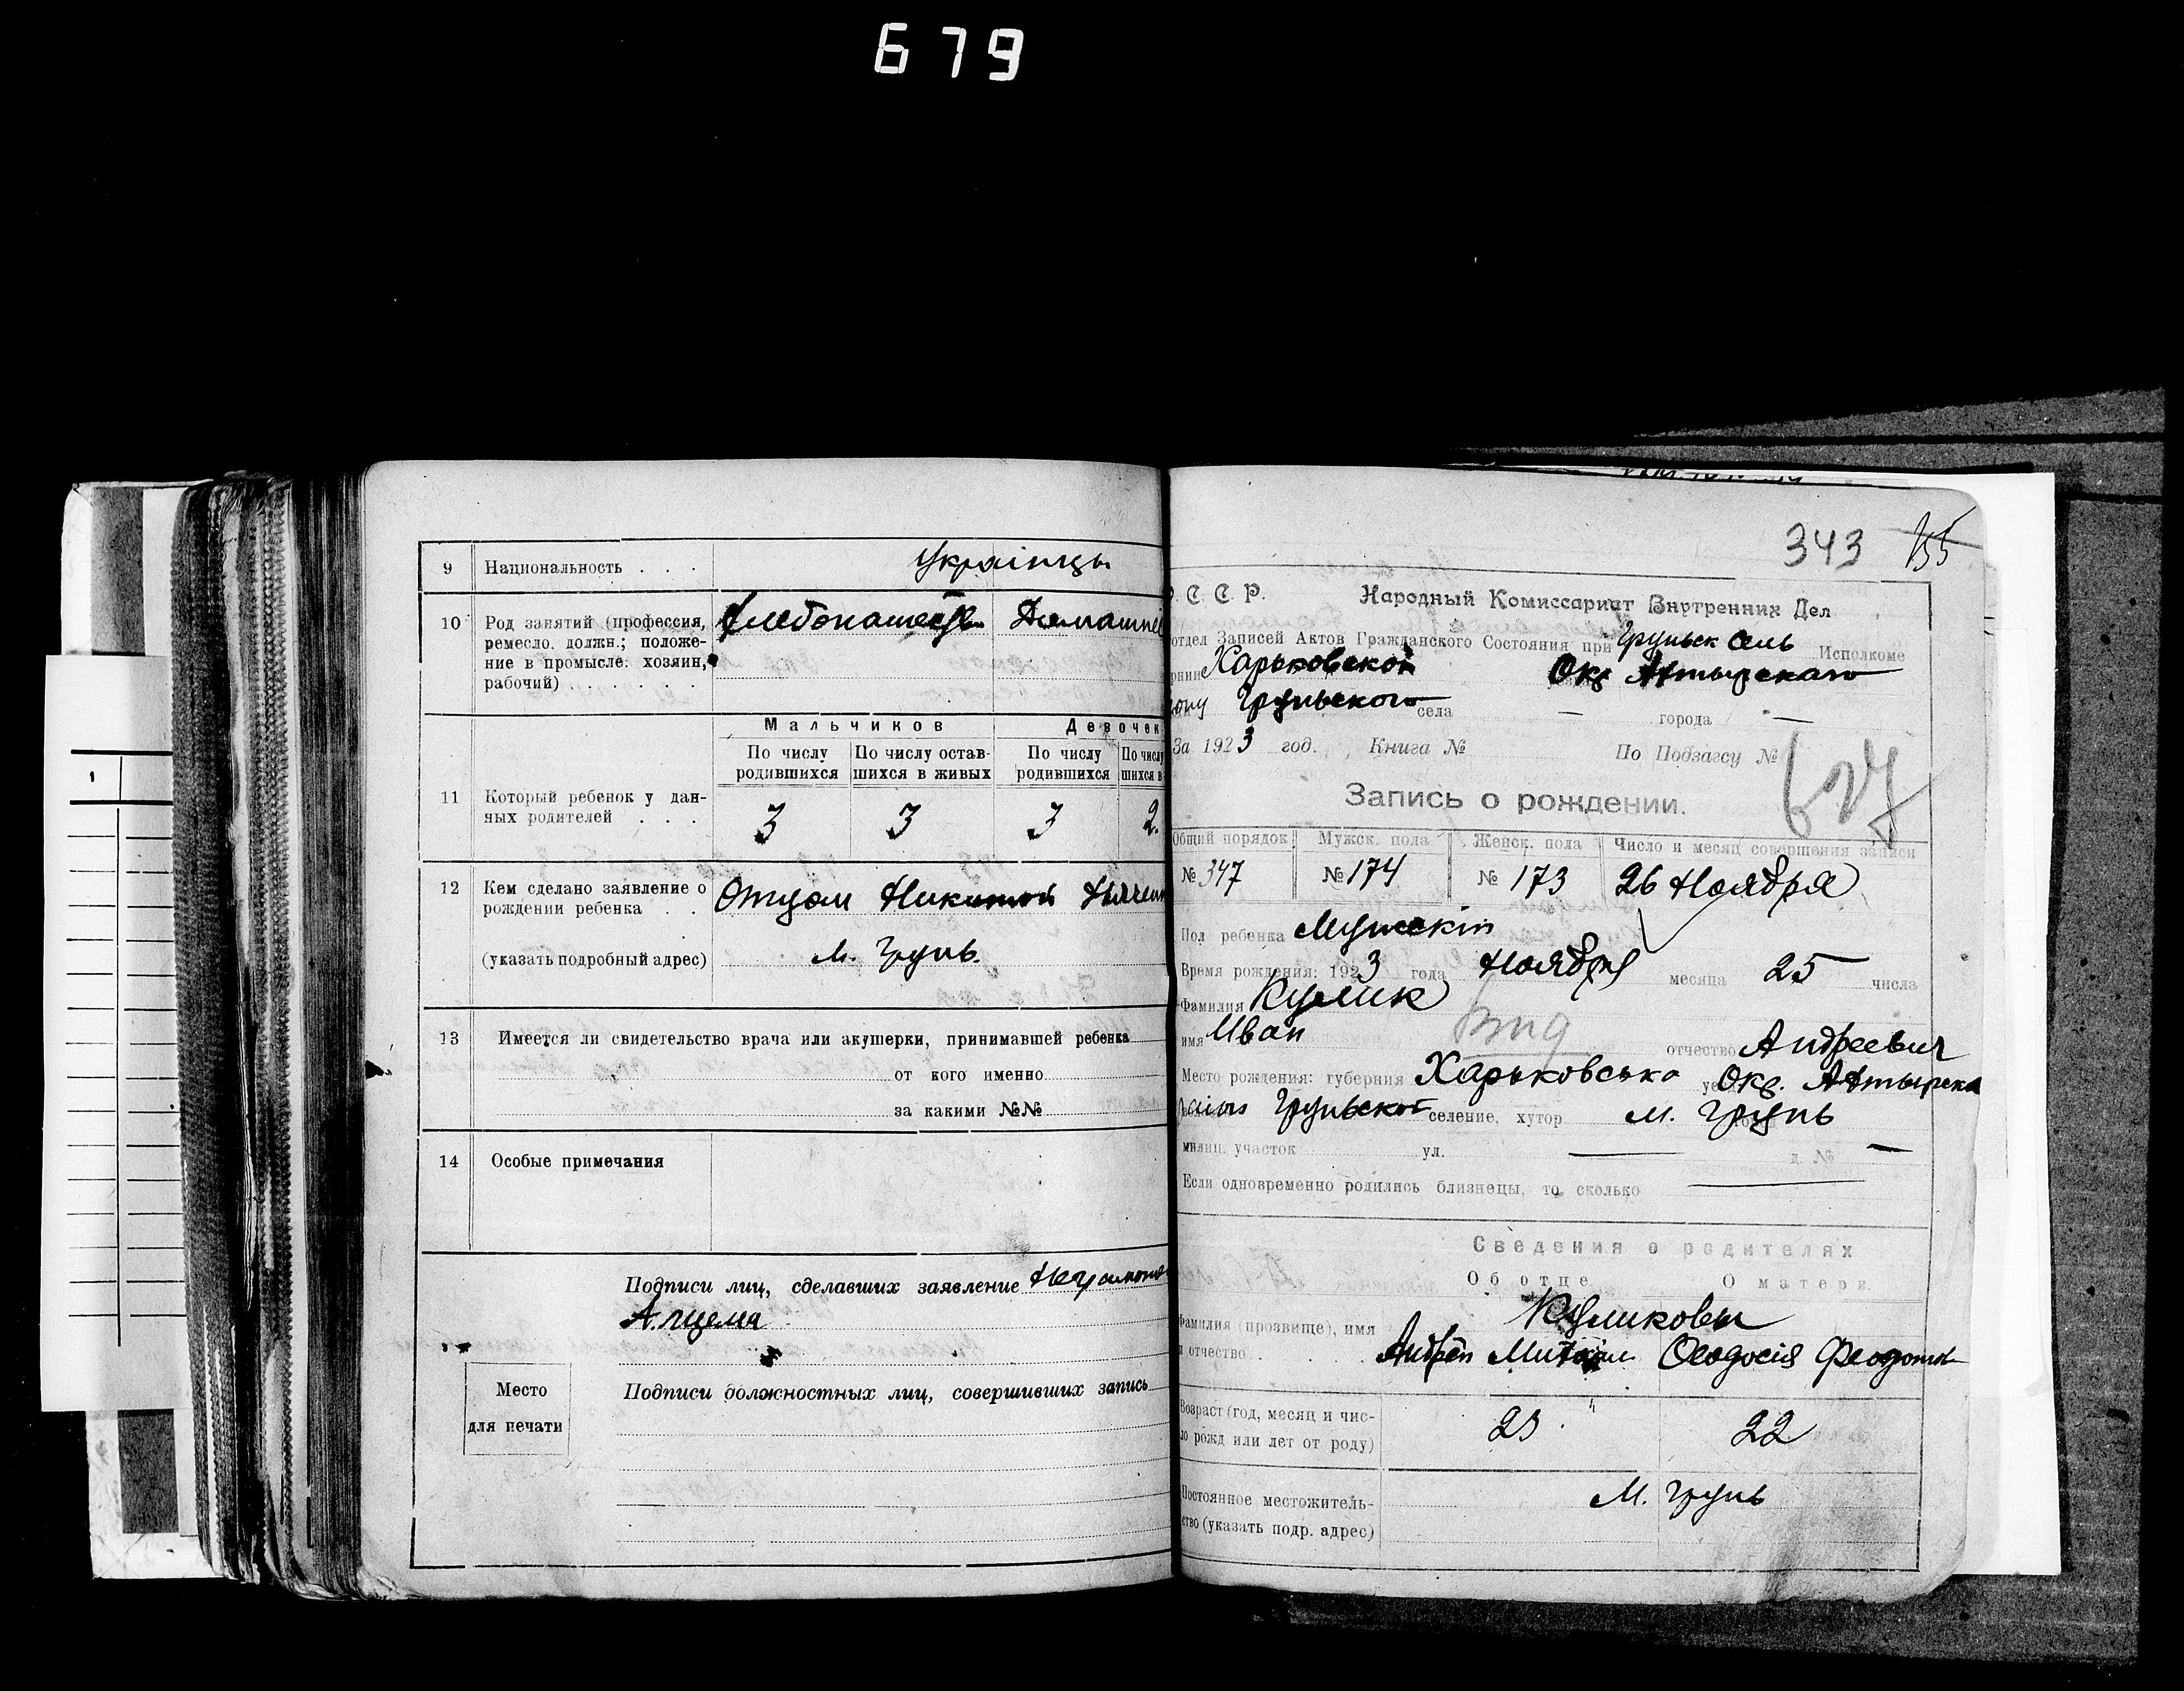 679
9 Национальность . . . Українцы
10 Род занятий (профессия, ремесло, должн.; положение в промысле: хозяин, рабочий) . . . . . .
Хлебопашество
Мальчиков Девочек
По числу родившихся По числу оставшихся в живых По числу родившихся По числу
11 Который ребенок у данных родителей . . . 3 3 3 2.
12 Кем сделано заявление о рождении ребенка . . Отцом Никитой
(указать подробный адрес) м. Грунь.
13 Имеется ли свидетельство врача или акушерки, принимавшей ребенка
от кого именно
за какими №№
14 Особые примечания
Подписи лиц, сделавших заявление
Подписи должностных лиц, совершивших запись
Место
для печати
343 155
С. С. Р. Народный Комиссариат Внутренних Дел
отдел Записей Актов Гражданского Состояния при Груньск Сель Исполкоме
Харьковской Окр Ахтырскаго
Груньского села — города —
За 1923 год. Книга № По Подзагсу №
Запись о рождении.
Общий порядок Мужск. пола Женск. пола Число и месяц совершения записи
№ 347 № 174 № 173 26 Ноября
Пол ребенка Мужскій
Время рождения: 1923 года Ноября месяца 25 числа
Фамилия Кулик
имя Иван отчество Андреевич
Место рождения: губерния Харьковсько Окр. Ахтырска
Груньской селение, хутор м. Грунь
милиц. участок ул. — д. № —
Если одновременно родились близнецы, то сколько —
Сведения о родителях
Об отце О матери.
Куликовы
Фамилия (прозвище), имя и отчество . . . Андрей Михаил Феодосія Феодотов
Возраст (год, месяц и число рожд или лет от роду) 23 22
Постоянное местожительство (указать подр. адрес) М. Грунь